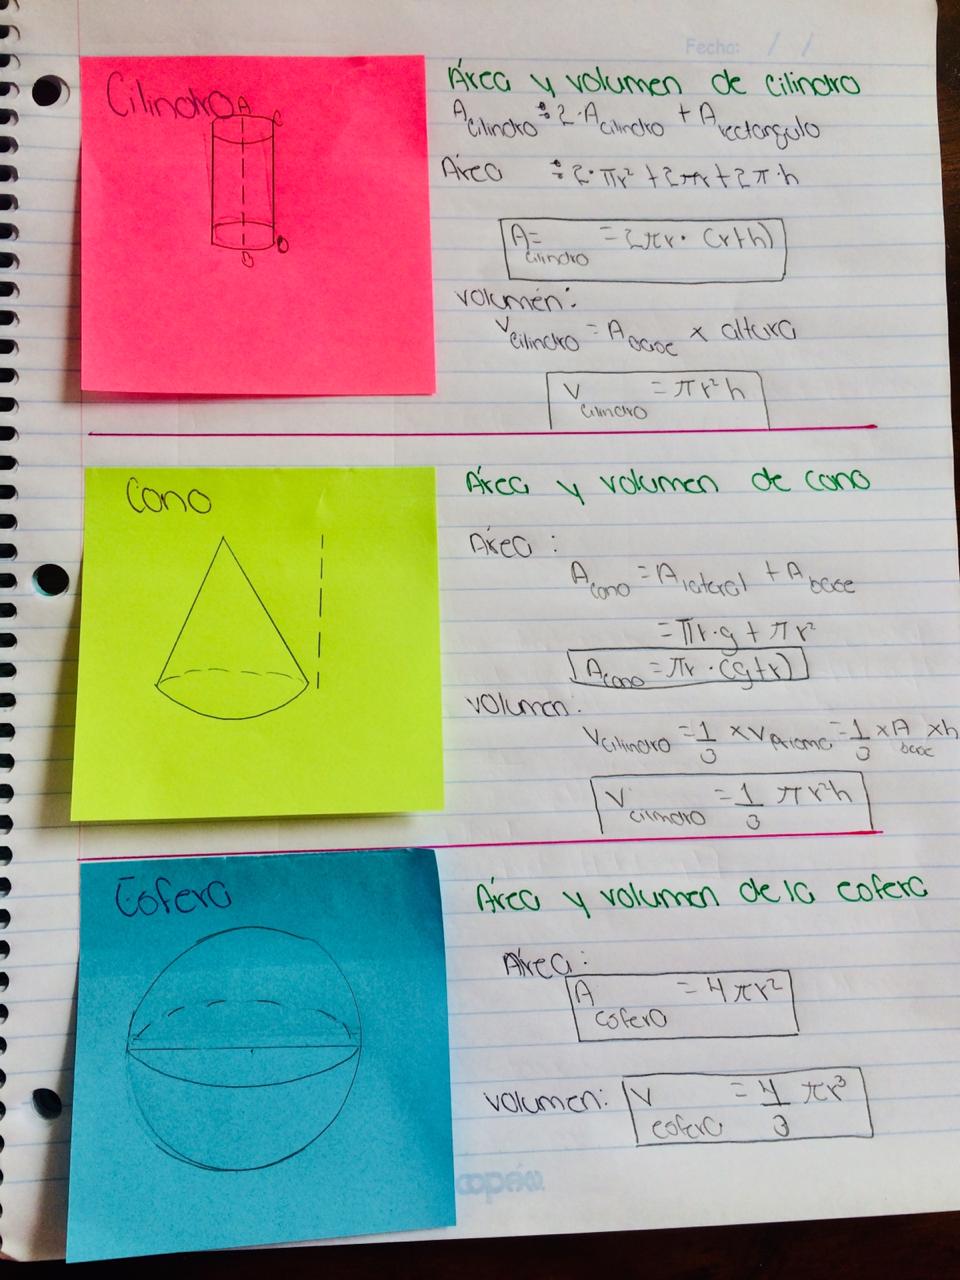 Fecha: / /
Cilindro
A
C
D
B
Área y volumen de cilindro
A cilindro = 2·A cilindro + A rectangulo
Área = 2·πr² + 2πr + 2π·h
A= cilindro = 2πr·(r+h)
volumen:
V cilindro = A base x altura
V cilindro = πr²h
Cono
Área y volumen de cono
Área:
A cono = A lateral + A base
= πr·g + πr²
A cono = πr·(g+r)
volumen:
V cilindro = 1/3 x V Prisma = 1/3 x A base x h
V cilindro = 1/3 πr²h
Esfera
Área y volumen de la esfera
Área:
A esfera = 4πr²
volumen: V esfera = 4/3 πr³